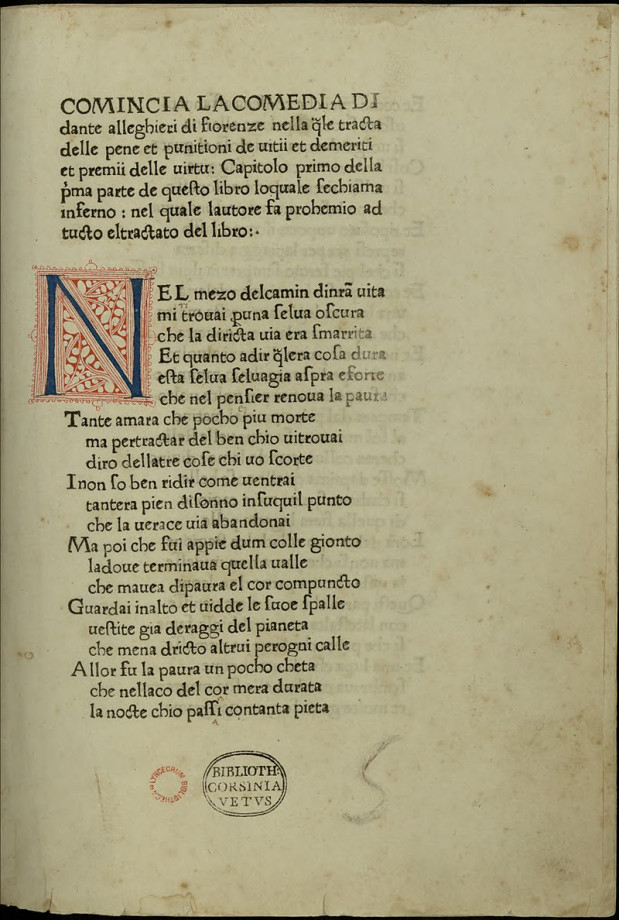 COMINCIA LA COMEDIA DI
dante alleghieri di fiorenze nella q̃le tracta
delle pene et punitioni de uitii et demeriti
et premii delle uirtu: Capitolo primo della
p̃ma parte de queſto libro loquale ſechiama
inferno : nel quale lautore fa prohemio ad
tucto eltractato del libro:·
NEL mezo delcamin dinr̃a uita
mi trouai ꝑuna ſelua oſcura
che la diricta uia era ſmarrita
Et quanto adir q̃lera coſa dura
eſta ſelua ſeluagia aſpra eforte
che nel penſier renoua la paura
Tante amara che pocho piu morte
ma pertractar del ben chio uitrouai
diro dellatre coſe chi uo ſcorte
I non ſo ben ridir come uentrai
tantera pien diſonno inſuquil punto
che la uerace uia abandonai
Ma poi che fui appie dum colle gionto
ladoue terminaua quella ualle
che mauea dipaura el cor compuncto
Guardai inalto et uidde le ſuoe ſpalle
ueſtite gia deraggi del pianeta
che mena dricto altrui perogni calle
Allor fu la paura un pocho cheta
che nellaco del cor mera durata
la nocte chio paſſi contanta pieta
LYNCEORUM BIBLIOTHECA
BIBLIOTH·
CORSINIA
VETVS